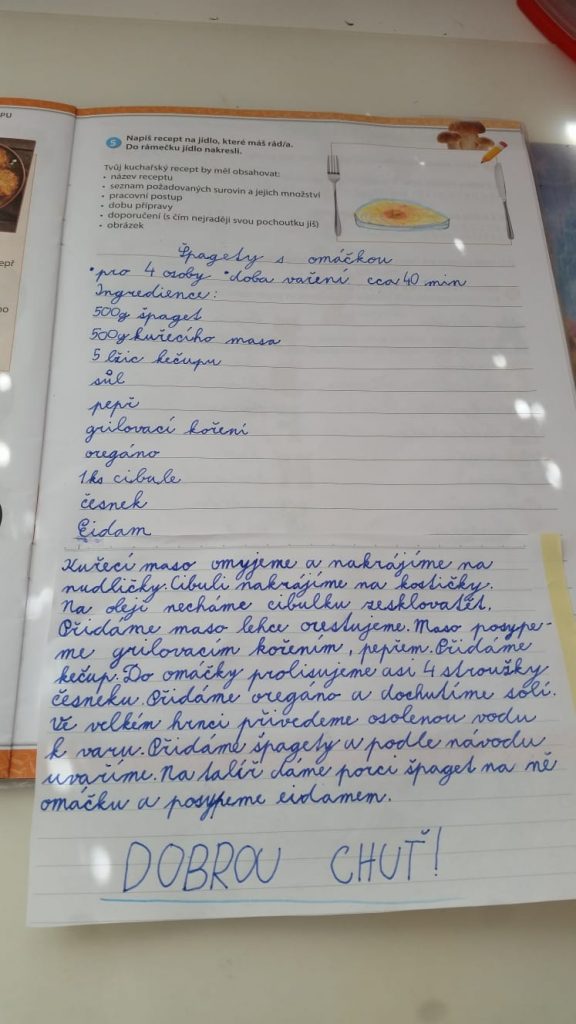 PU
5 Napiš recept na jídlo, které máš rád/a.
Do rámečku jídlo nakresli.
Tvůj kuchařský recept by měl obsahovat:
• název receptu
• seznam požadovaných surovin a jejich množství
• pracovní postup
• dobu přípravy
• doporučení (s čím nejraději svou pochoutku jíš)
• obrázek
Špagety s omáčkou
• pro 4 osoby • doba vaření cca 40 min
Ingredience:
500g špaget
500g kuřecího masa
5 lžic kečupu
sůl
pepř
grilovací koření
oregáno
1ks cibule
česnek
Eidam
Kuřecí maso omyjeme a nakrájíme na
nudličky. Cibuli nakrájíme na kostičky.
Na oleji necháme cibulku zesklovatět.
Přidáme maso lehce orestujeme. Maso posype-
me grilovacím kořením, pepřem. Přidáme
kečup. Do omáčky prolisujeme asi 4 stroužky
česneku. Přidáme oregáno a dochutíme solí.
Ve velkém hrnci přivedeme osolenou vodu
k varu. Přidáme špagety a podle návodu
uvaříme. Na talíř dáme porci špaget na ně
omáčku a posypeme eidamem.
DOBROU CHUŤ!